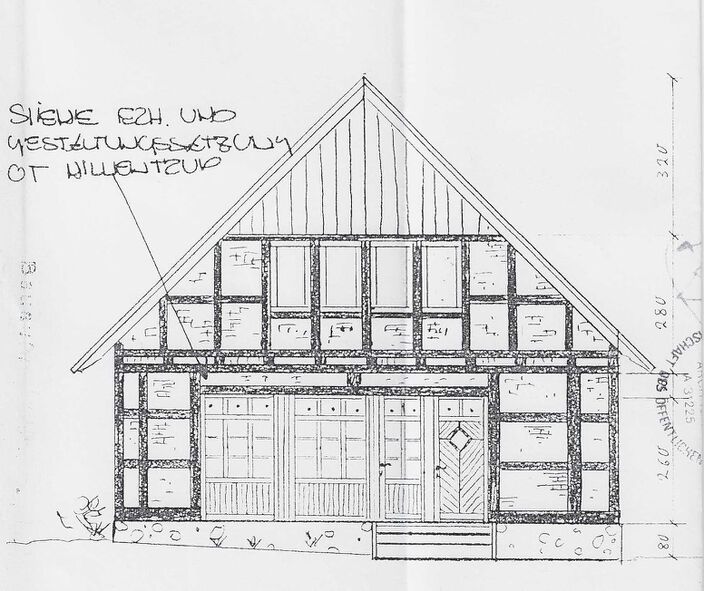 SIEHE EZH. UND
GESTALTUNGSSATZUNG
OT
320
280
260
80
SCHAFT DES ÖFFENTLICHEN
A 31225